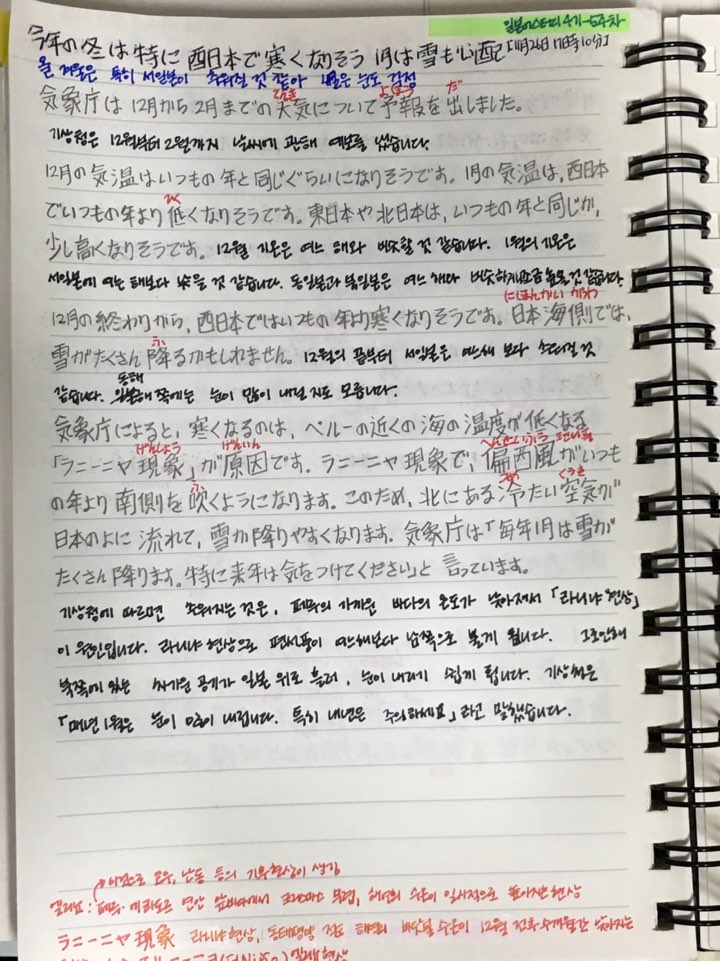 일본어스터디 4기-5주차
今年の冬は特に 西日本で寒くなりそう 1月は雪も心配 [11月24日 17時10分]
올 겨울은 특히 서일본이 추워질 것 같아 1월은 눈도 걱정
てんき よほう だ
気象庁は 12月から 2月までの 天気について予報を 出しました。
기상청은 12월부터 2월까지 날씨에 관해 예보를 냈습니다.
12月の 気温はいつもの 年と同じぐらいになりそうです。1月の 気温は、西日本
ひく
でいつもの年より 低くなりそうです。東日本や北日本は、いつもの 年と同じか、
少し高くなりそうです。 12월 기온은 여느 해와 비슷할 것 같습니다. 1월의 기온은
서일본에 여느 해보다 낮을 것 같습니다. 동일본과 북일본은 여느 해와 비슷하게 조금 높을 것 같습니다.
にほんかい がわ
12月の 終わりから、西日本ではいつもの 年より寒くなりそうです。日本海側では、
ふ
雪がたくさん 降るかもしれません。 12월의 끝부터 서일본은 여느해 보다 추워질 것
동해
같습니다. 일본해 쪽에는 눈이 많이 내릴 지도 모릅니다.
気象庁によると、寒くなるのは、ペルーの近くの 海の 温度が 低くなる
げんしょう げんいん へんせいふう 편서풍
「ラニーニャ 現象」が原因です。ラニーニャ 現象で、偏西風がいつも
ふ つめ くうき
の年より 南側を 吹くようになります。このため、北にある 冷たい 空気が
日本のよに 流れて、雪が降りやすくなります。気象庁は「毎年1月は雪が
たくさん 降ります。特に来年は気をつけてください」と 言っています。
기상청에 따르면 추워지는 것은, 페루의 가까운 바다의 온도가 낮아져서 「라니냐 현상」
이 원인입니다. 라니냐 현상으로 편서풍이 여느해보다 남쪽으로 불게 됩니다. 그로인해
북쪽에 있는 차가운 공기가 일본 위로 흘러, 눈이 내리기 쉽게 됩니다. 기상청은
「매년 1월은 눈이 많이 내립니다. 특히 내년은 주의하세요」라고 말했습니다.
폭우, 난동 등의 기후현상이 생김
엘니뇨: 페루 에콰도르 연안 앞바다에서 크리스마스 무렵, 해면의 수온이 일시적으로 높아지는 현상
ラニーニャ 現象 라니냐 현상, 동태평양 적도 해면의 바닷물 수온이 12월 전후 수개월간 낮아지는